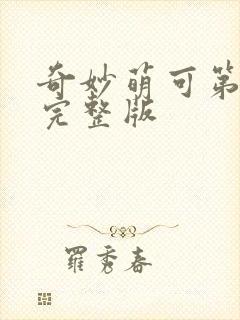 奇妙萌可第
完整版
羅秀春